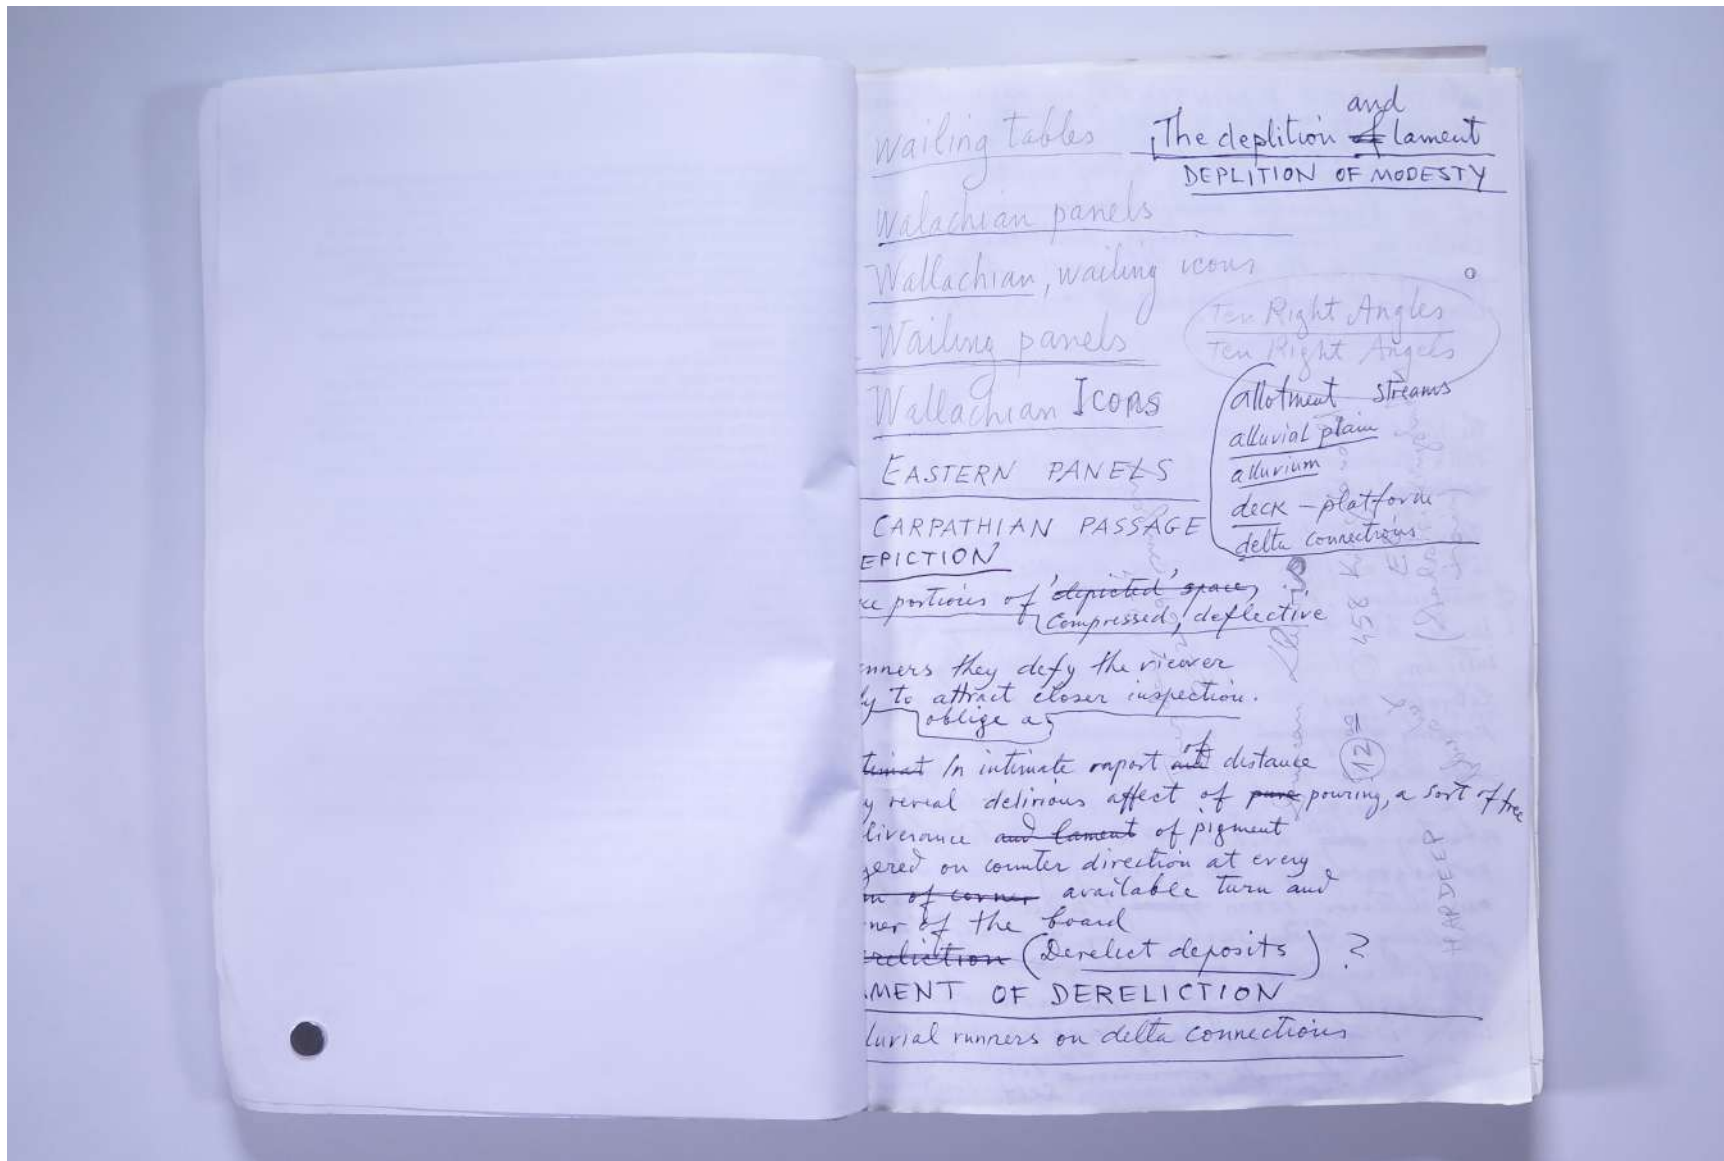 wailing tables
and
The deplition of lament
DEPLITION OF MODESTY
Walachian panels
Wallachian, wailing icons
Ten Right Angles
Ten Right Angels
Wailing panels
Wallachian Icons
allotment streams
alluvial plain
alluvium
deck - platform
delta connections
EASTERN PANELS
CARPATHIAN PASSAGE
EPICTION
portions of 'depicted' space,
compressed, deflective
nners they defy the viewer
y to attract closer inspection.
oblige a
In intimate raport of distance
y reveal delirious affect of pure pouring, a sort of free
liverance and lament of pigment
gered on counter direction at every
of corner available turn and
ner of the board
reliction (Derelict deposits) ?
MENT OF DERELICTION
luvial runners on delta connections
458
12
HARDEEP